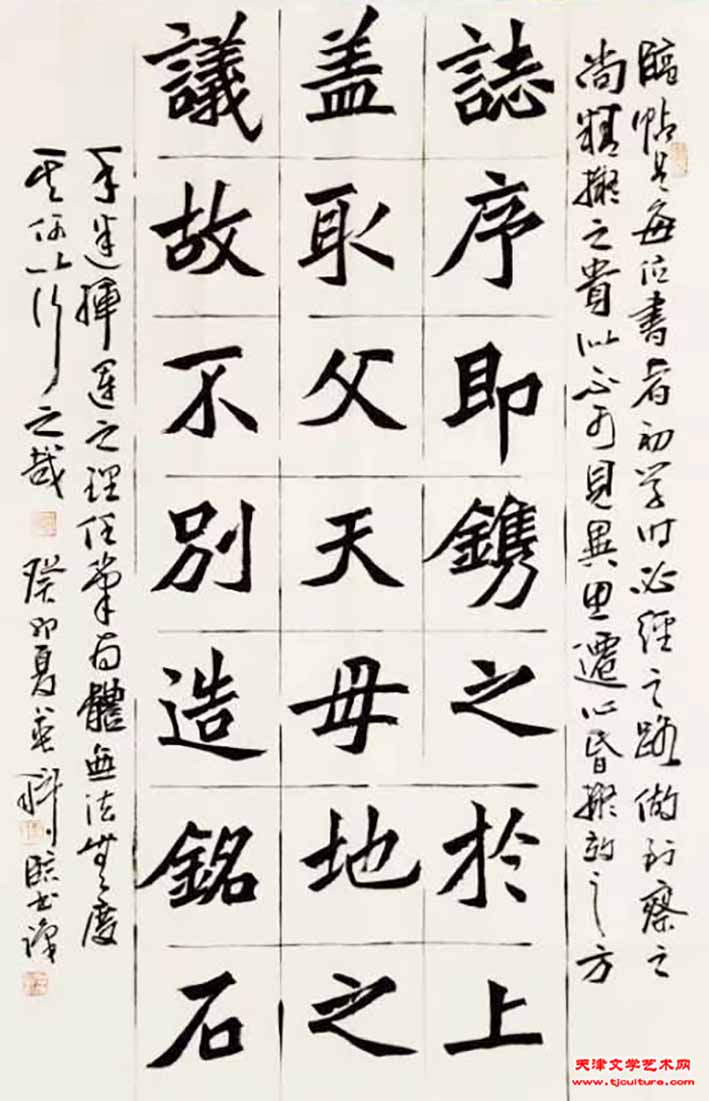 臨帖是每位書者初學時必經之路做到察之
尚精擬之貴似不可見異思遷心昏擬效之方
誌序即鐫之於上
盖取父天母地之
議故不別造銘石
手迷揮運之理任筆為體無法無度
其何以行之哉 癸卯夏 臨书
天津文学艺术网
www.tjculture.com